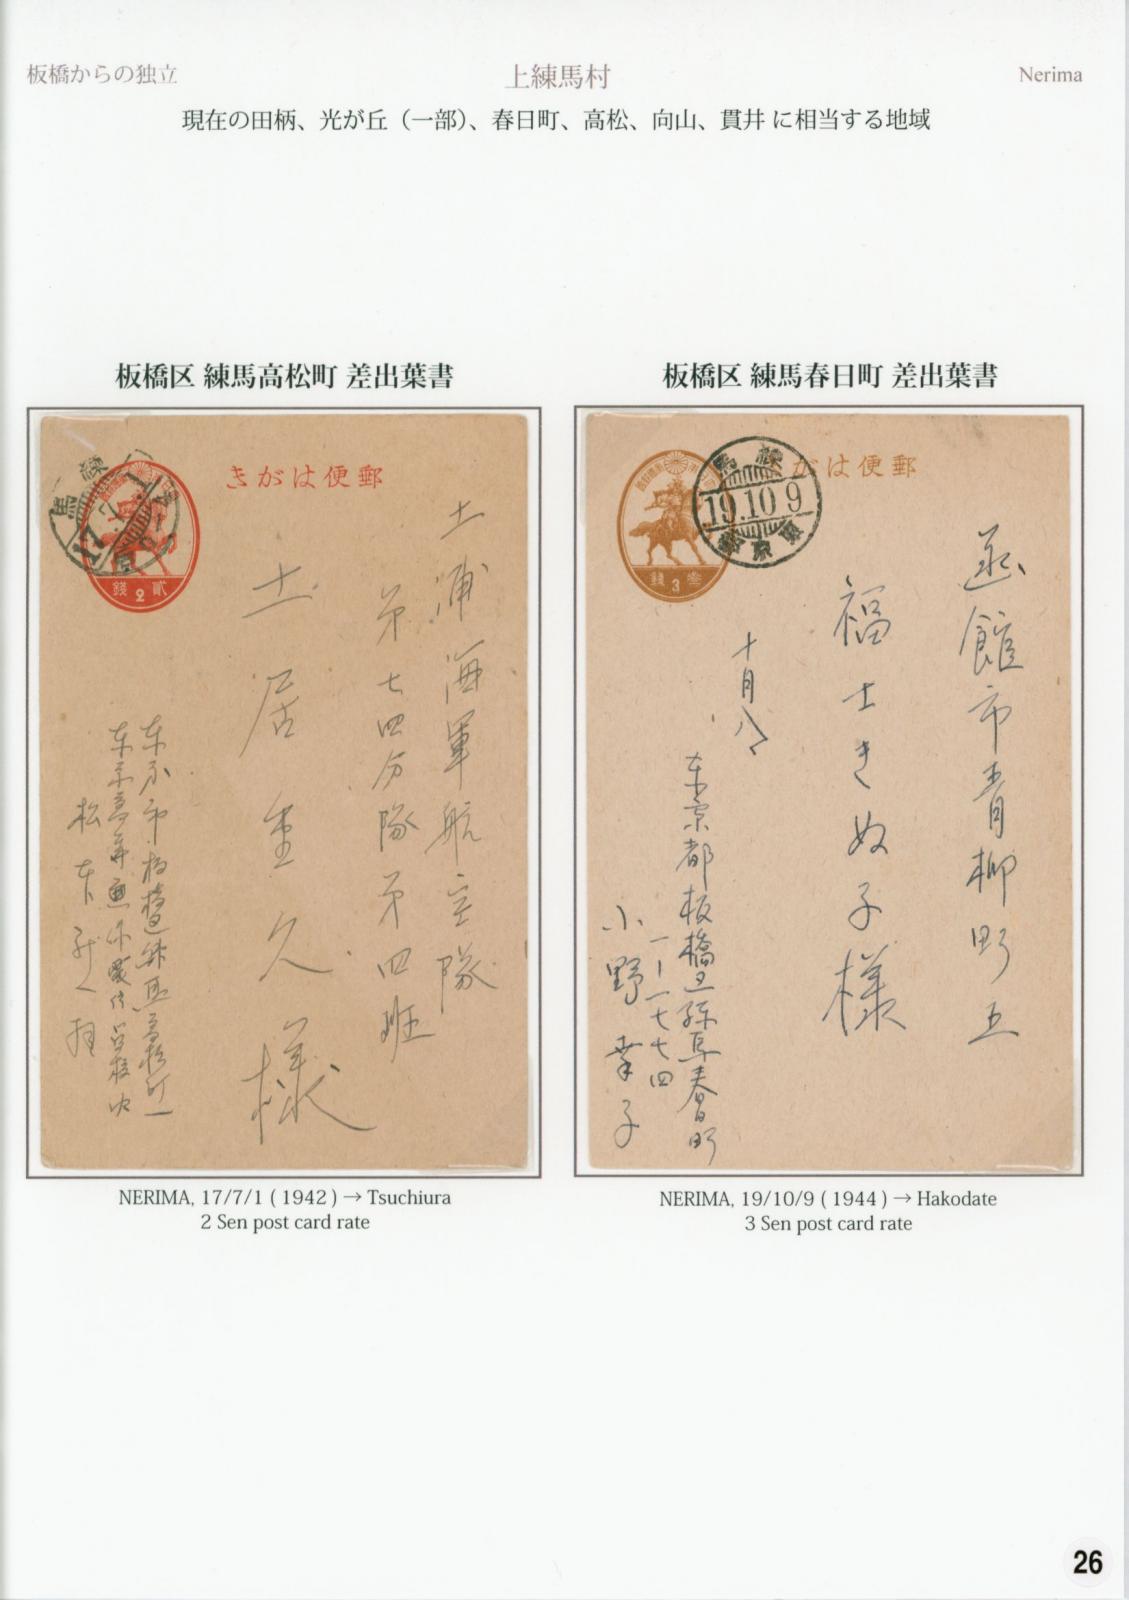 板橋からの独立
上練馬村
Nerima
現在の田柄、光が丘（一部）、春日町、高松、向山、貫井 に相当する地域
板橋区 練馬高松町 差出葉書
きがは便郵
練馬
17.7.1
錢2貳
土浦海軍航空隊
第七四分隊第四班
土居重久様
東京市板橋区練馬高松町一
松本
NERIMA, 17/7/1 ( 1942 ) → Tsuchiura
2 Sen post card rate
板橋区 練馬春日町 差出葉書
がは便郵
馬練
19.10.9
京東
錢3叁
函館市青柳町五
福士きぬ子様
十月八
東京都板橋区練馬春日町
一ノ一七七四
小野幸子
NERIMA, 19/10/9 ( 1944 ) → Hakodate
3 Sen post card rate
26